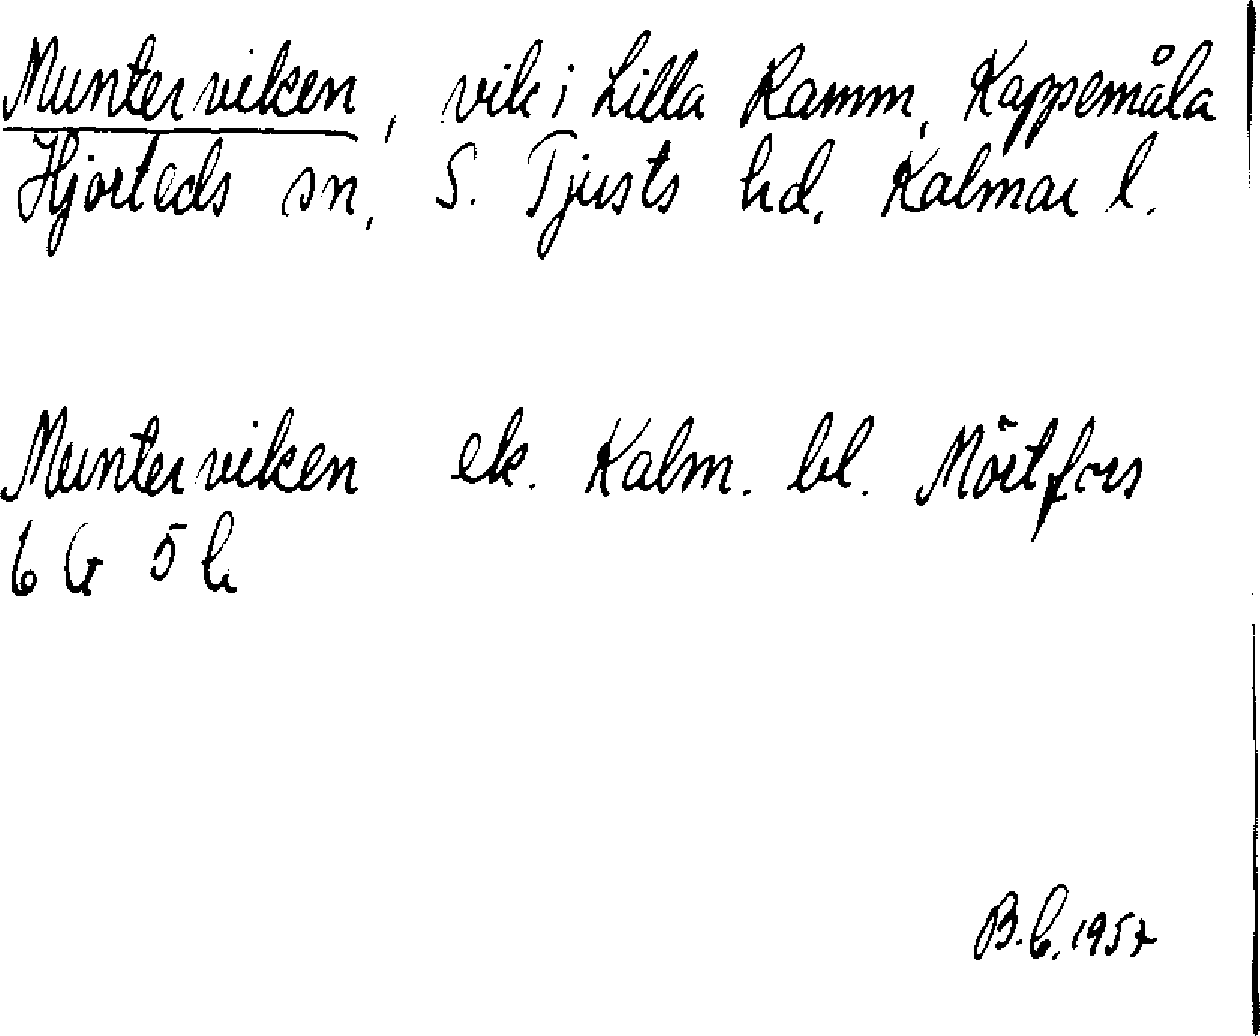 Munterviken, vik i Lilla Ramm, Kappemåla
Hjorteds sn, S. Tjusts hd, Kalmar l.
Munterviken ek. Kalm. bl. Mörtfors
6 G 5 h
B.G. 1957